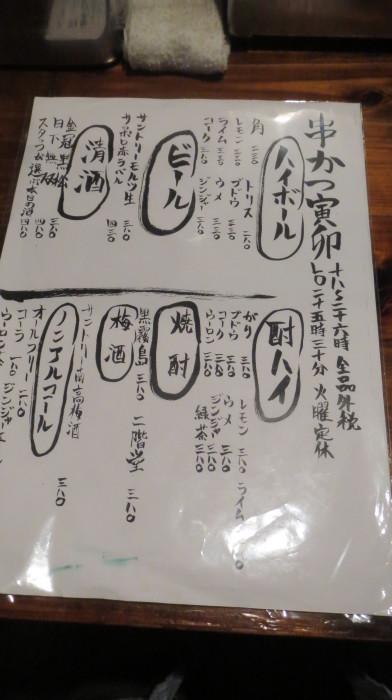 串かつ寅卯
十八〜二十六時 全品外税
L.O.二十五時三十分 火曜定休
ハイボール
角 三三〇
トリス 二八〇
レモン 三三〇
ブドウ 三三〇
ライム 三三〇
ウメ 三三〇
コーク 三八〇
ジンジャー 三八〇
ビール
サントリーモルツ生 三八〇
サッポロ赤ラベル 四三〇
清酒
金冠黒松 三八〇
日下無双 四八〇
スタッフお選み本日の酒 四八〇
酎ハイ
がり 三八〇
レモン
ライム
ブドウ 三八〇
ウメ 三八〇
コーク 三八〇
ジンジャー 三八〇
ウーロン 三八〇
緑茶 三八〇
焼酎
黒霧島 三八〇
二階堂 三八〇
梅酒
サントリー南高梅酒 三八〇
ノンアルコール
オールフリー 三八〇
コーラ 一八〇
ジンジャー
ウーロン茶